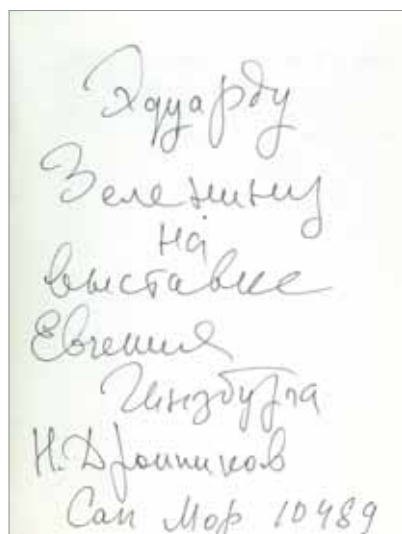 Эдуарду
Зеленину
на
выставке
Евгения
Гинзбурга
Н. Дронников
Сан Мор 10489